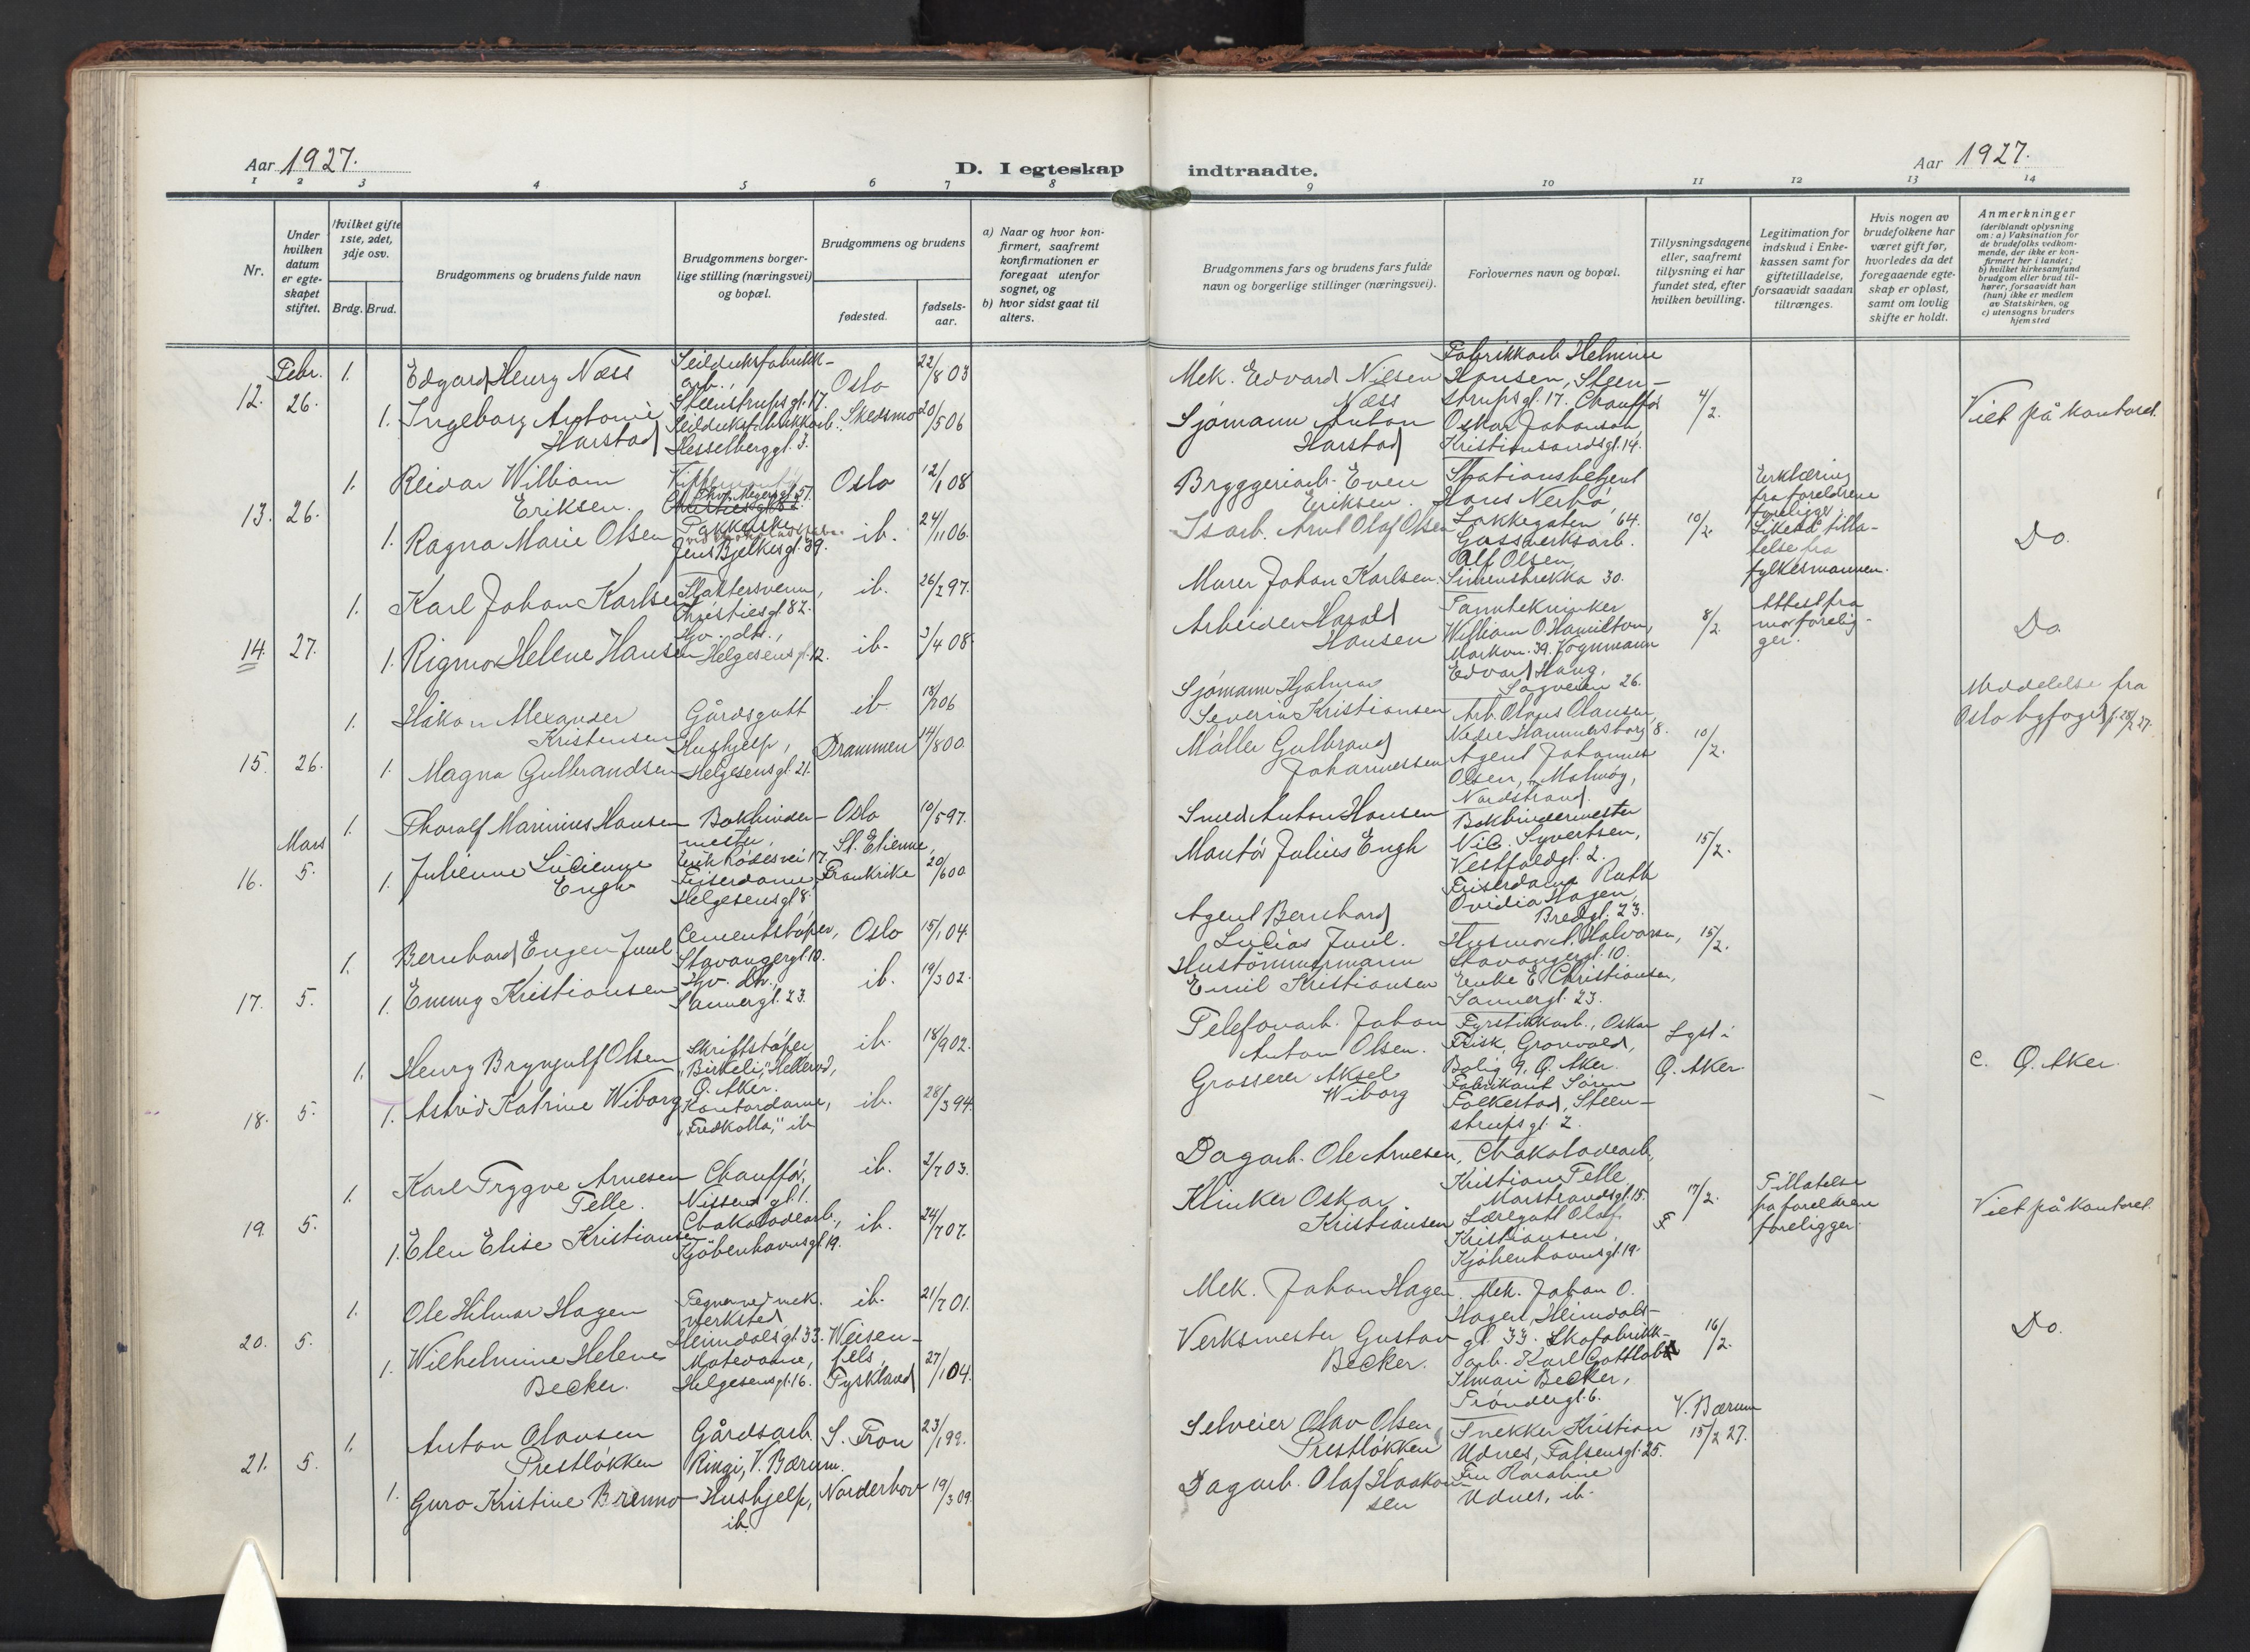 Aar 1927.
D. I egteskap indtraadte.
Aar 1927.
1 2 3 4 5 6 7 8 9 10 11 12 13 14
Nr.
Under hvilken datum er egteskapet stiftet.
Hvilket gifte 1ste, 2det, 3dje osv.
Brdg. Brud.
Brudgommens og brudens fulde navn
Brudgommens borgerlige stilling (næringsvei) og bopæl.
Brudgommens og brudens
fødested.
fødselsaar.
a) Naar og hvor konfirmert, saafremt konfirmationen er foregaat utenfor sognet, og
b) hvor sidst gaat til alters.
Brudgommens fars og brudens fars fulde navn og borgerlige stillinger (næringsvei).
Forlovernes navn og bopæl.
Tillysningsdagene eller, saafremt tillysning ei har fundet sted, efter hvilken bevilling.
Legitimation for indskud i Enkekassen samt for giftetilladelse, forsaavidt saadan tiltrænges.
Hvis nogen av brudefolkene har været gift før, hvorledes da det foregaaende egteskap er opløst, samt om lovlig skifte er holdt.
Anmerkninger
(deriblandt oplysning om: a) Vaksination for de brudefolks vedkommende, der ikke er konfirmert her i landet; b) hvilket kirkesamfund brudgom eller brud tilhører, forsaavidt han (hun) ikke er medlem av Statskirken, og c) utensogns bruders hjemsted
12. Febr. 26.
1. Edgard Henry Næss
Seildukfabrikkarb., Steenstrupsgt. 17.
Oslo 22/8 03
1. Ingeborg Antonie Harstad
Seildukfabrikkarb. Hesselberggt. 3.
Skedsmo 20/5 06
Mek. Edvard Nilsen Næss
Sjømann Anton Harstad
Fabrikkarb. Helmine Hansen, Steenstrupsgt. 17. Chauffør Oskar Johansen, Kristiansandsgt. 14.
4/2.
Viet på kontoret.
13. 26.
1. Reidar William Eriksen.
Thv. Meyersgt. 51.
Oslo 12/1 08
1. Ragna Marie Olsen
Pakkerske
Jens Bjelkesgt. 39.
ib. 24/11 06.
Bryggeriarb. Even Eriksen.
Isarb. Arnt Olaf Olsen
Stationsbetjent Hans Nerbø, Lakkegaten 64.
Gassverksarb. Alf Olsen, Simenstrekka 30.
10/2.
Erklæring fra foreldrene foreligger. Likeså tillatelse fra fylkesmannen.
Do.
14. 27.
1. Karl Johan Karlsen
Slaktersvenn, Christiesgt. 82.
ib. 26/2 97.
1. Rigmor Helene Hansen
Hv. dtr., Helgesensgt. 12.
ib. 3/4 08.
Murer Johan Karlsen.
Arbeider Harald Hansen
Tanntekniker William O. Hamilton, Markvn. 39. Vognmann Edvard Haug, Sagveien 26.
8/2.
Attest fra mor foreligger.
Do.
15. 26.
1. Håkon Alexander Kristensen
Gårdsgutt
ib. 18/7 06
1. Magna Gulbrandsen
Hushjelp, Helgesensgt. 21.
Drammen 14/8 00.
Sjømann Hjalmar Severin Kristiansen
Møller Gulbrand Johannessen
Arb. Olaus Olausen, Nedre Hammersborg 8.
Agent Johannes Olsen, Malmøg, Nordstrand.
10/2.
Meddelelse fra Oslo byfoged f. 28/2 27.
16. Mars 5.
1. Thoralf Marinius Hansen
Bokbindermester,
Oslo 10/5 97.
1. Julienne Lucienne Engh
Frisérdame, Helgesensgt 8
St. Etienne, Frankrike 20/6 00
Smed Anton Hansen
Montør Julius Engh
Bokbindermester Nic. Syvertsen, Vestfoldgt. 2.
Frisérdame Ruth Ovidia Hagen, Bredgt. 23.
15/2.
17. 5.
1. Bernhard Engen Juul
Cementstøper, Stavangergt. 10.
Oslo 15/1 04.
1. Emmy Kristiansen
Hv. dtr., Sannergt. 23.
ib. 19/3 02.
Agent Bernhard Lucias Juul.
Hustømmermann Emil Kristiansen
Husmor A. Halvorsen, Stavangergt. 10.
Enke E. Christiansen, Sannergt. 23.
15/2.
18. 5.
1. Henry Brynjulf Olsen
Skriftstøper, "Birkeli," Hellerud, Ø. Aker.
ib. 18/9 02.
1. Astrid Katrine Wiborg
Kontordame, "Fredkolla," ib
ib. 28/3 94.
Telefonarb. Johan Anton Olsen.
Grosserer Aksel Wiborg
Fyrstikkarb., Oskar Frisk, Grønvold, Bolig 9, Ø. Aker.
Fabrikant Søren Folkestad, Steenstrupsgt. 2.
Lyst i Ø. Aker.
c. Ø. Aker.
19. 5.
1. Karl Trygve Arnesen Telle.
Chauffør, Nissensgt. 1.
ib. 2/7 03.
1. Elen Elise Kristiansen
Chokoladearb., Kjøbenhavnsgt. 19.
ib. 24/7 07.
Dagarb. Ole Arnesen,
Klinker Oskar Kristiansen
Chokoladearb. Kristian Telle, Marstrandsgt. 15.
Læregutt Olaf Kristiansen, Kjøbenhavnsgt. 19.
17/2. F
Tillatelse fra foreldrene foreligger.
Viet på kontoret.
20. 5.
1. Ole Hilmar Hagen
Tegner ved mek. verksted, Heimdalsgt. 33.
ib. 21/7 01.
1. Wilhelmine Helene Becker.
Motedame, Helgesensgt. 16.
Weisenfels, Tyskland 27/1 04.
Mek. Johan Hagen.
Verksmester Gustav Becker.
Mek. Johan O. Hagen, Heimdalsgt. 33. Skofabrikkarb. Karl Gottlob Ilmari Becker, Trøndergt. 6.
16/2.
Do.
21. 5.
1. Anton Olausen Prestløkken
Gårdsarb. Ringi, V. Bærum.
S. Fron 23/1 99.
1. Guro Kristine Brenno
Hushjelp, ib.
Norderhov 19/3 09.
Selveier Olav Olsen Prestløkken
Dagarb. Olaf Haakonsen
Snekker Kristian Udnes, Falsensgt. 25.
Fru Karoline Udnes, ib.
V. Bærum 15/2 27.